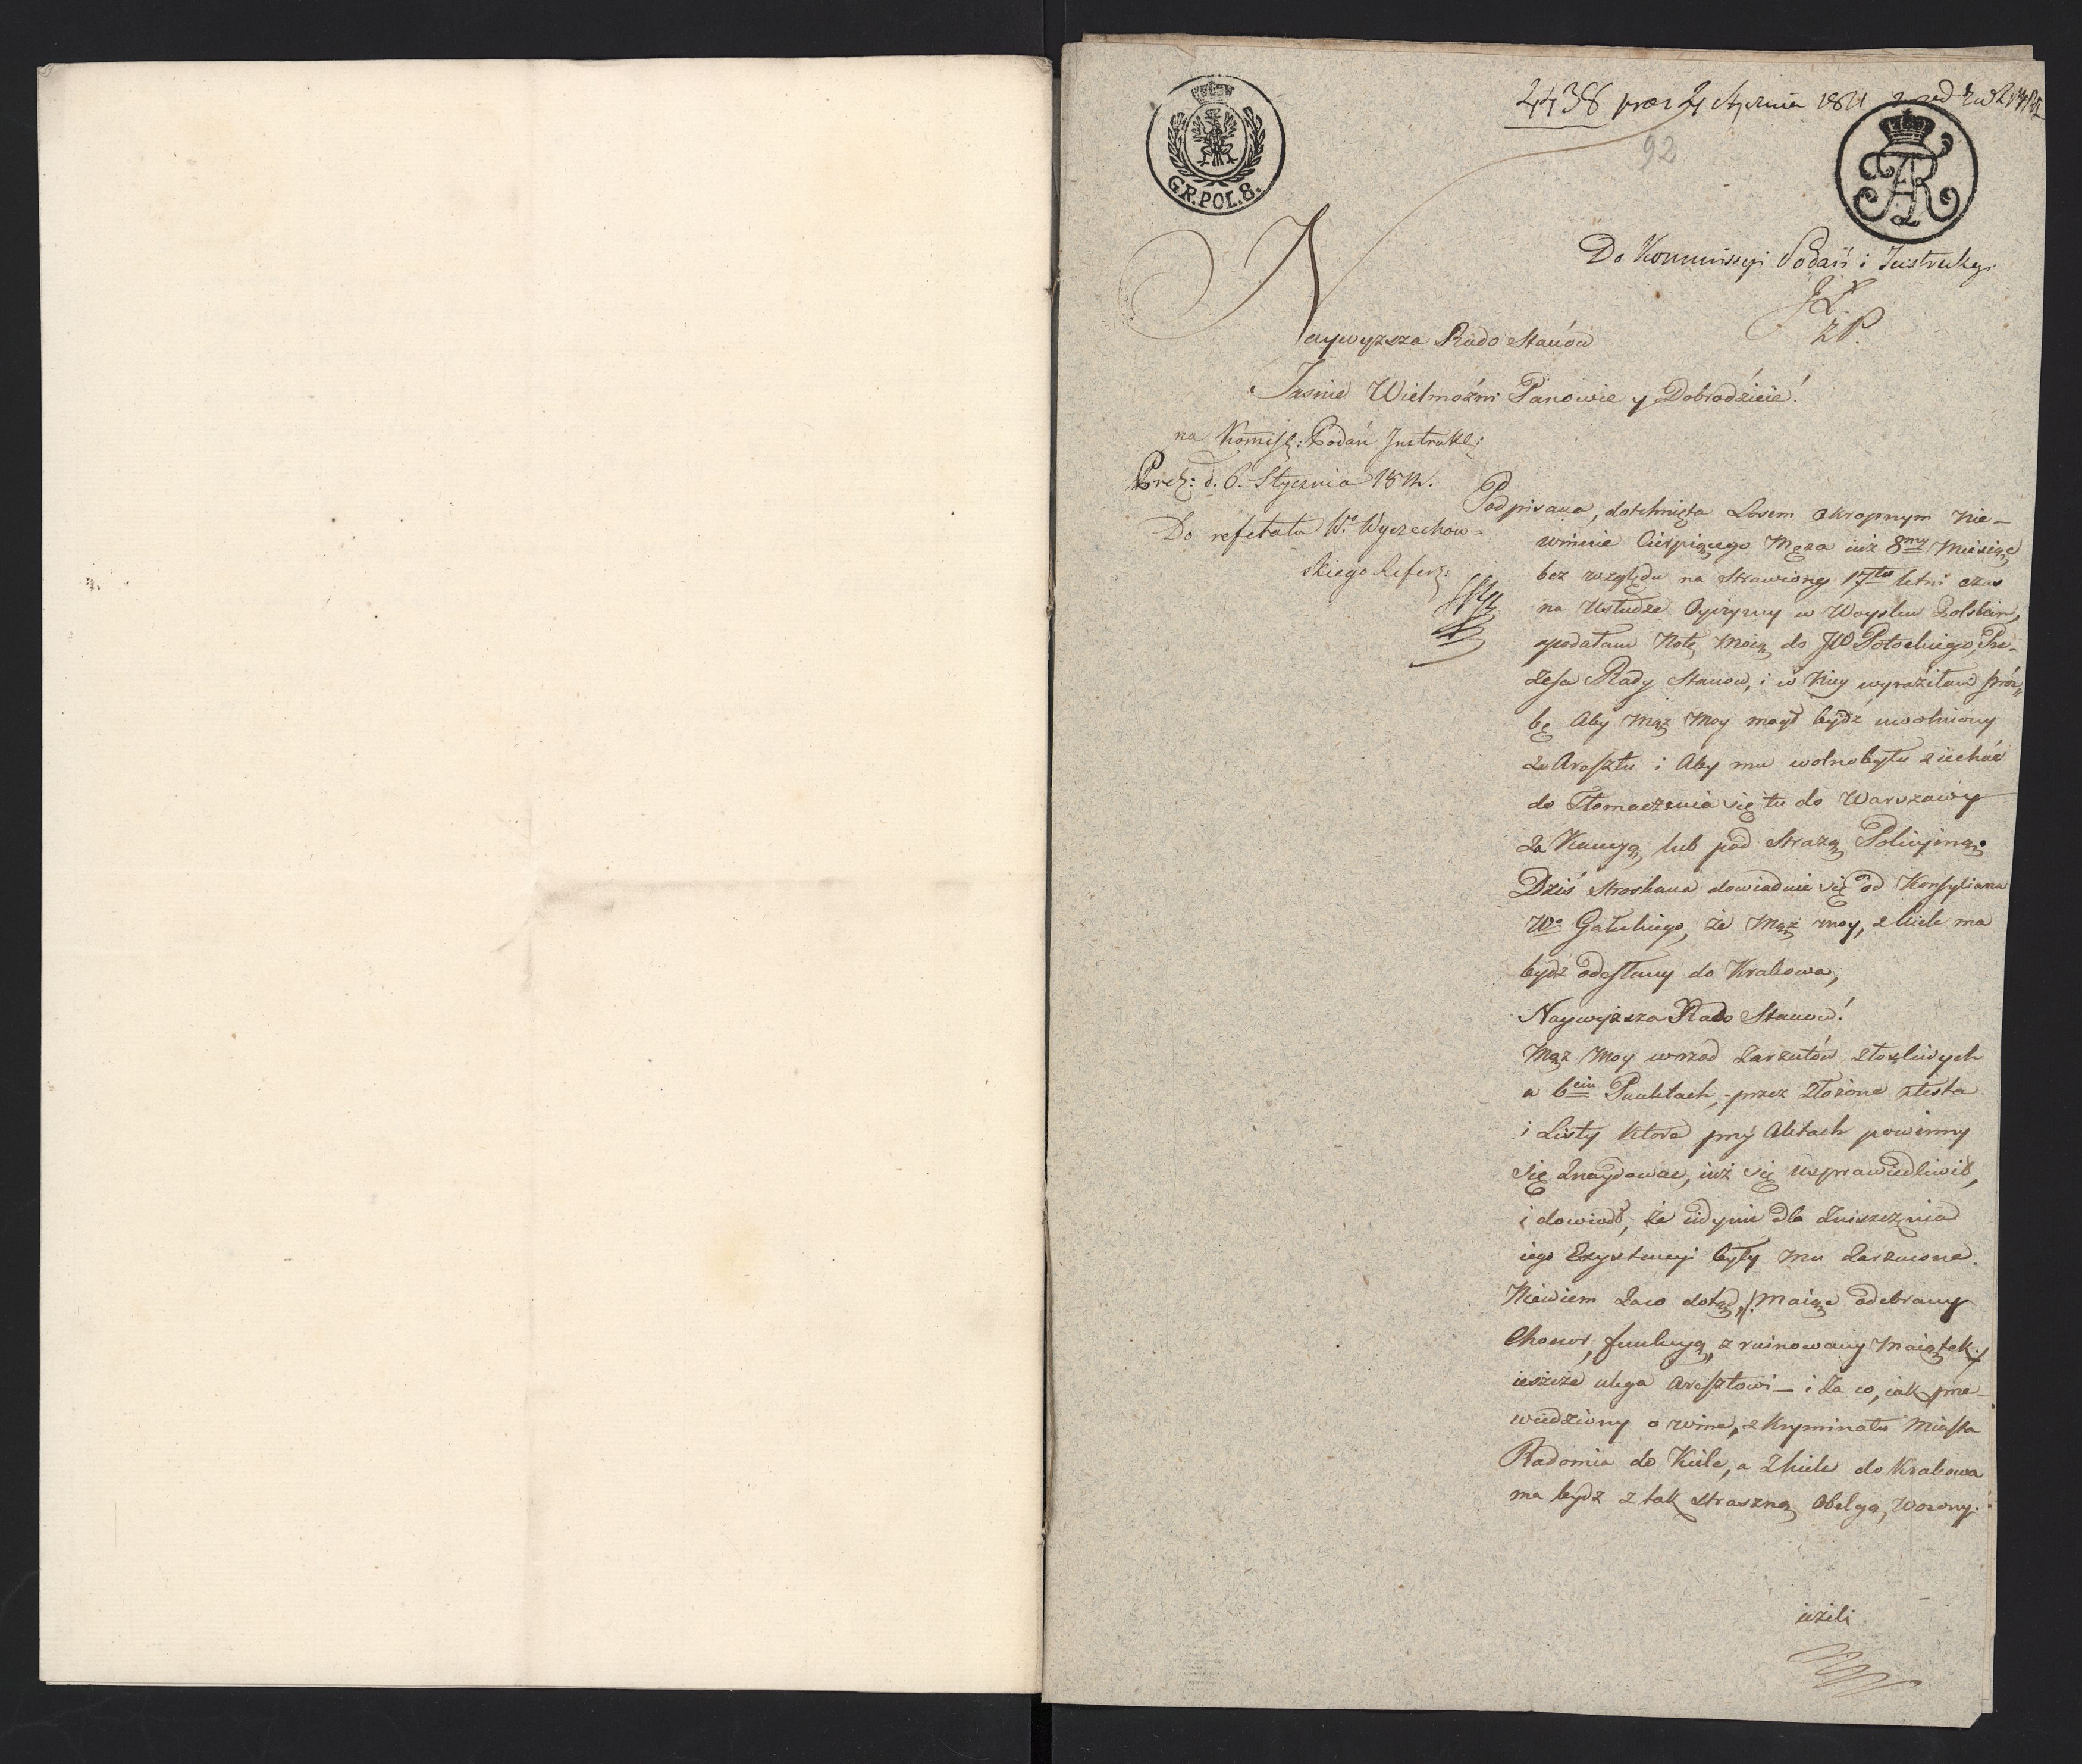 2438 prez 2 Stycznia 1811
92
GR.POL.8.
Do Kommissyi Podań i Instrukcyi
Naywyzsza Rado Stanów
Jasnie Wielmożni Panowie y Dobrodzieie!
na Komisę: Podań Instrukc:
Prez: d. 6. Stycznia 1811.
Do referatu Wo Wyczechow=
skiego Refer:
Podpisana, dotchnięta Losem okropnym nie-
winnie Cierpiącego Męza iuż 8my Miesiąc
bez względu na Strawiony 17to letni czas
na Usłudze Oyczyzny w Woysku Polskim,
podałam Notę Moią do JW Potockiego, Pre-
zesa Rady Stanow, i w Niey wyraziłam proź„
bę Aby Mąz Moy mogł bydź uwolniony
z Aresztu i Aby mu wolno było ziechać
do Tłomaczenia się tu do Warszawy
za Kaucyą, lub pod Strazą Policyiną.
Dziś Stroskana dowiaduie się od Konsyliarza
Wo Gałuckiego, że Mąz moy, z Kielc ma
bydź odesłany do Krakowa,
Naywyższa Rado Stanow!
Mąz Moy wsrzod Zarzutów złosliwych
w 6ciu Punktach, przez Złożone
i Listy Które przy Aktach powinny
się Znaydować, iuż się usprawiedliwił,
i dowiodł, że iedynie dla Zniszczenia
iego Exystencyi były mu Zarzucone.
Niewiem Zaco dotąd, /: maiąc odebrany
Chonor, funkcyą, zruinowany Maiątek :/
ieszcze ulega Aresztowi — i Za co, iak prze-
wiedziony o winę, z Kryminału Miasta
Radomia do Kielc, a z Kielc do Krakowa
ma bydz z tak straszną Obelgą, wozony.
ieżeli